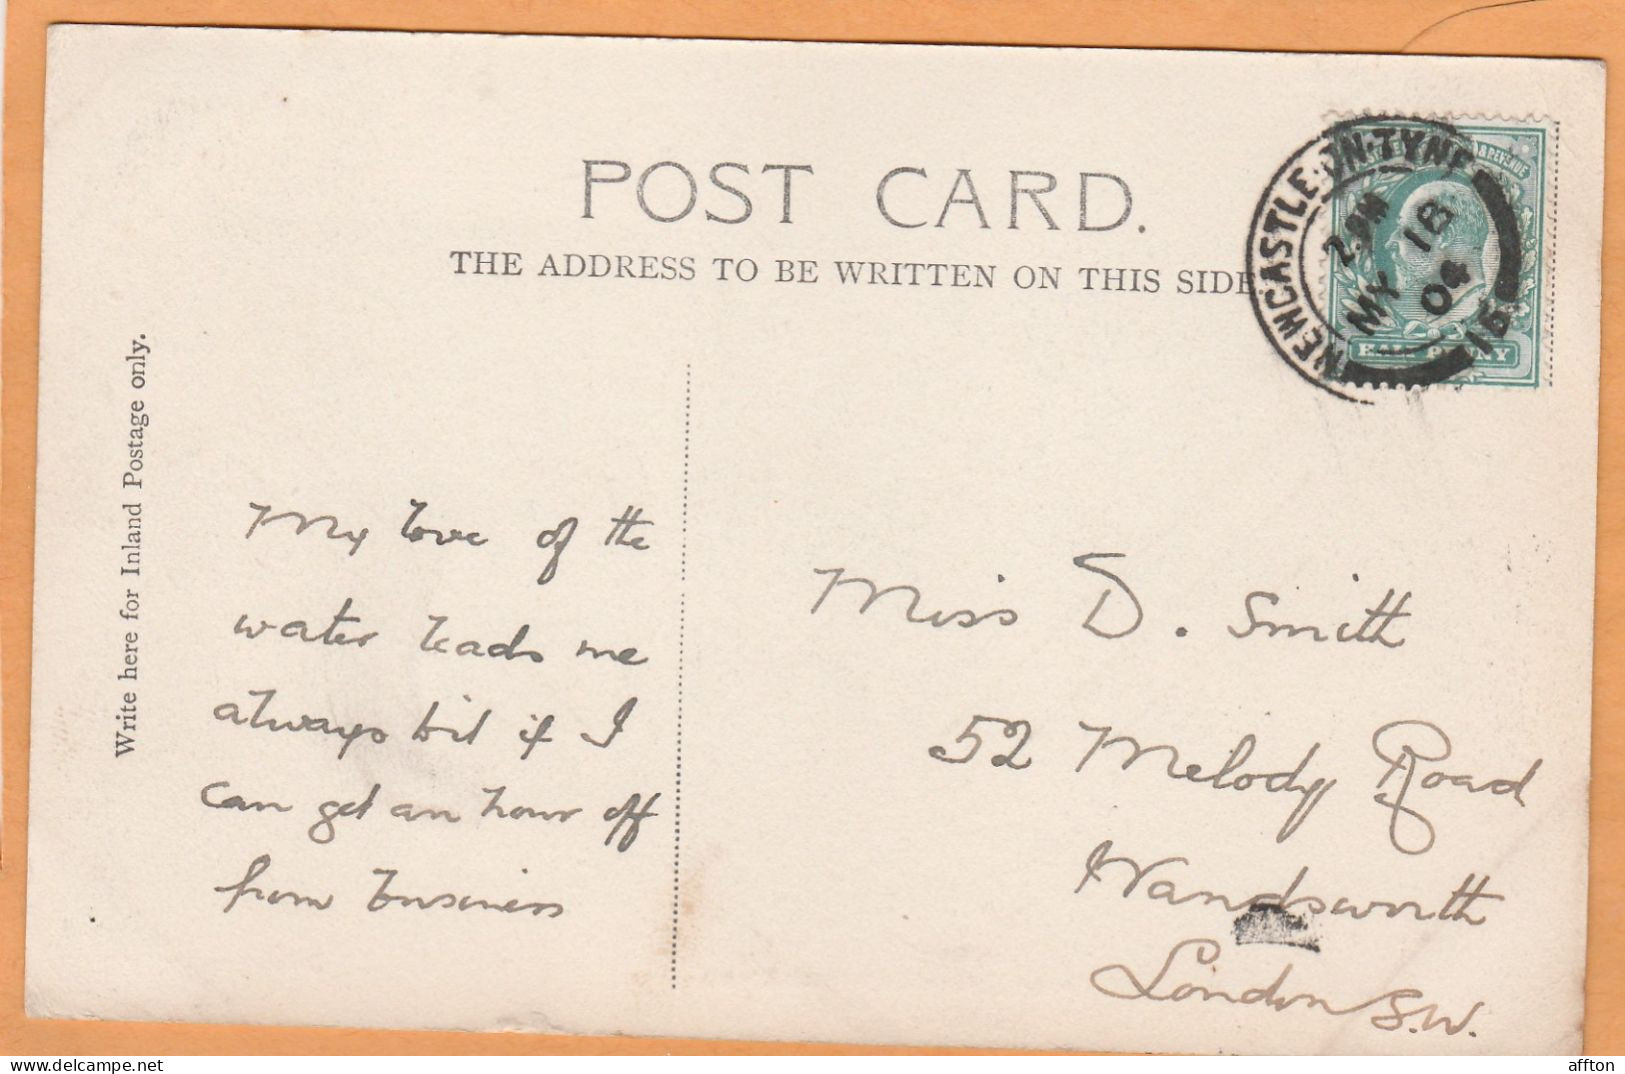 POST CARD.
THE ADDRESS TO BE WRITTEN ON THIS SIDE
NEWCASTLE·ON·TYNE
2.PM
MY 18
04
15
& REVENUE
HALFPENNY
Write here for Inland Postage only.
My love of the
water leads me
always but if I
can get an hour off
from business
Miss D. Smith
52 Melody Road
Wandsworth
London S.W.
affton
delcampe.net